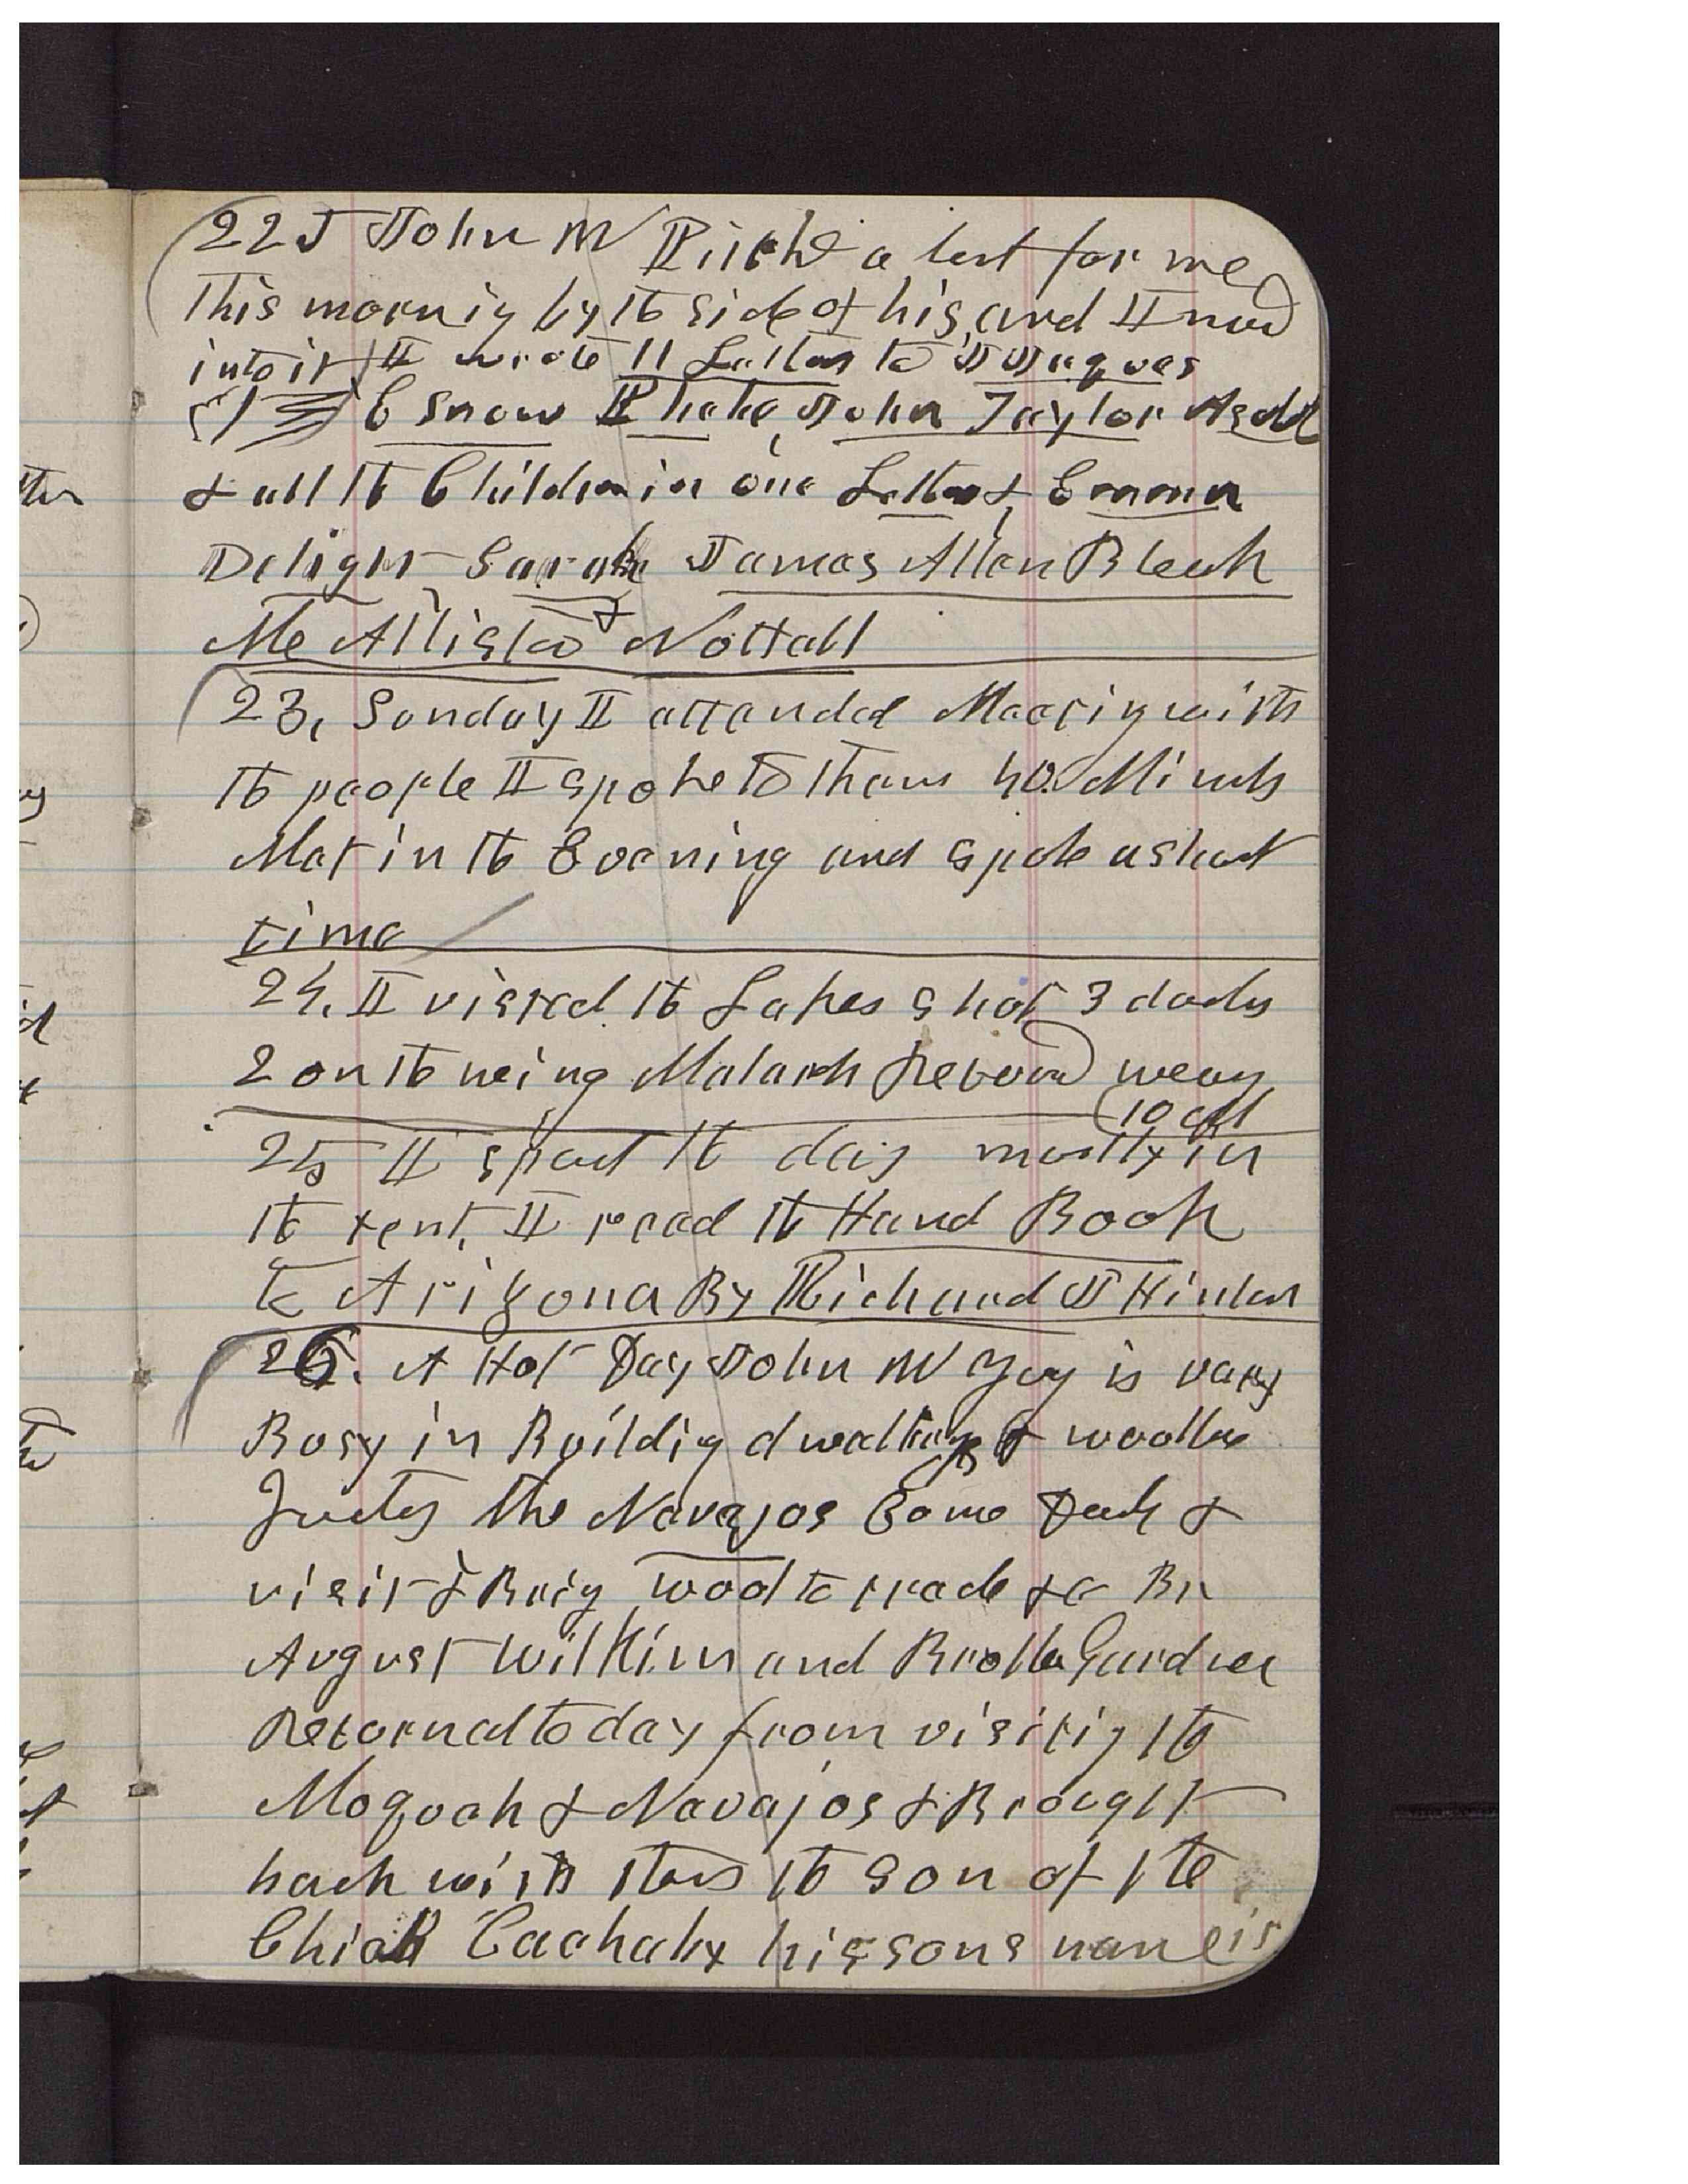 22 John W Pitchd a tent for me
This morning by the side of his, and I mod
into it I wrote 11 Letters to J Jaques
E Snow Phebe, John Taylor
& all the Children in one Letter & Emma
Delight Sarah James Allen Bleak
Mc Allister & Nuttall
23, Sunday I attended Meeting with
the people I spoke to them 40 Minuts
Met in the Evening and spoke a short
time
24. I visted the Lakes shot 3 ducks
2 on the wing Malark Returnd weary
10 all
25 I spent the day mostly in
the tent, I read the Hand Book
to Arizona By Richard J Hinton
26. A Hot Day John W Yog is vary
Busy in Building dwellings &
the Navajos Come &
visit & Brig wood to trade &c Br
August Wilkin and Brother Gardner
Returned to day from visiting the
Moquoh & Navajos & Brought
back with them the son of the
Chief his sons name is